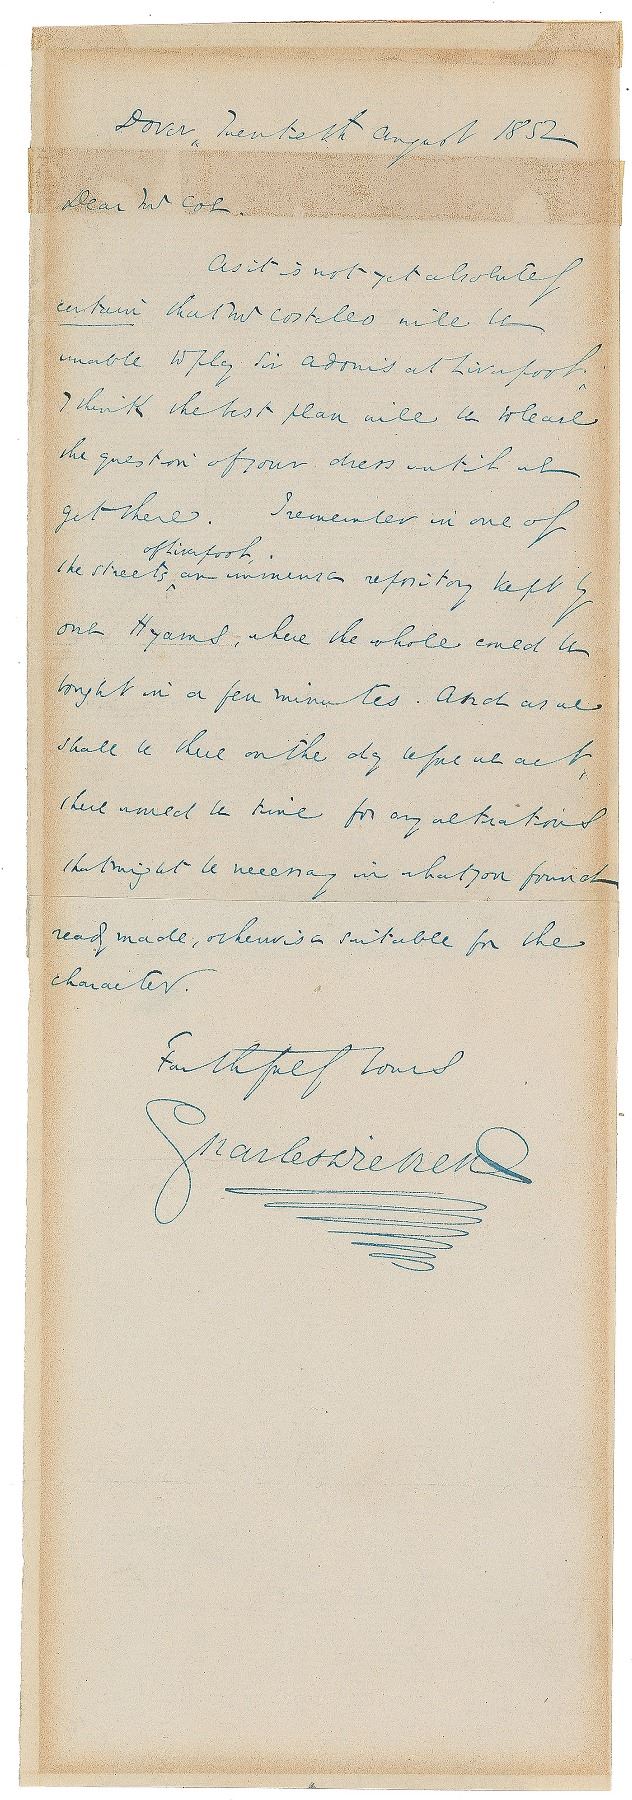 Dover, Twentieth August 1852
Dear Mr Coe.
As it is not yet absolutely
certain that Mr Costello will be
unable to play Sir Adonis at Liverpool,
I think the best plan will be to leave
the question of your dress until we
get there. I remember in one of
the streets of Liverpool, an immense repository kept by
one Hyams, where the whole could be
bought in a few minutes. And as we
shall be there on the day before we act,
there would be time for any alterations
that might be necessary in what you found
ready made, otherwise suitable for the
character.
Faithfully Yours
Charles Dickens